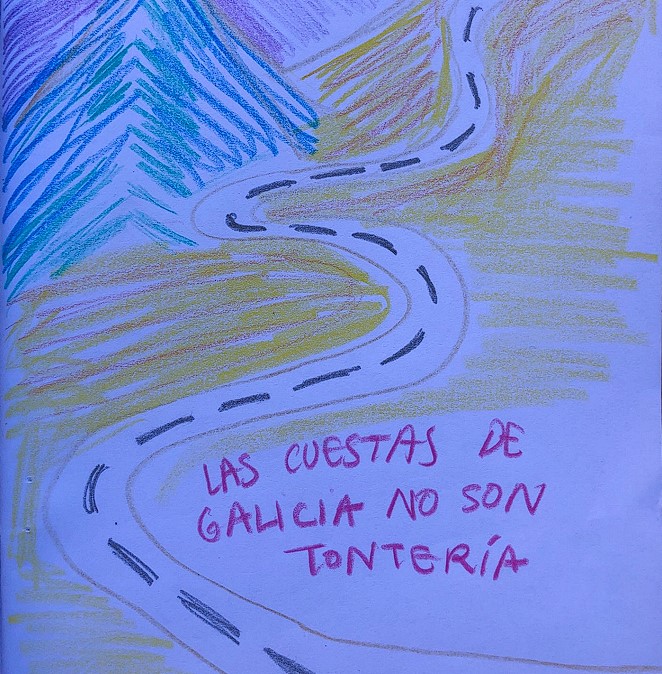 LAS CUESTAS DE
GALICIA NO SON
TONTERÍA